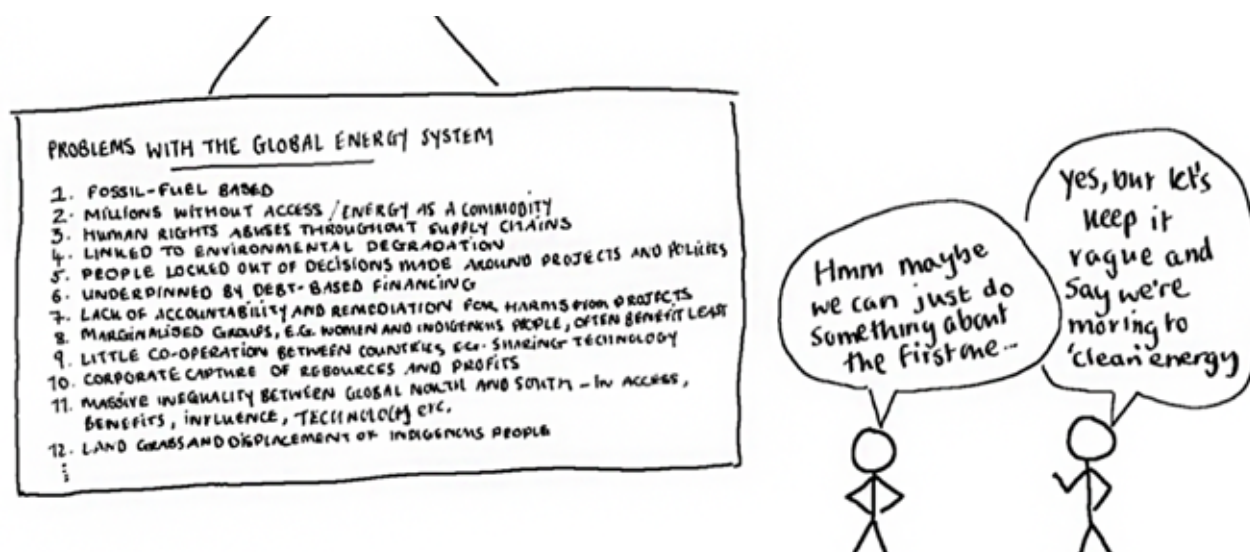 PROBLEMS WITH THE GLOBAL ENERGY SYSTEM
1. FOSSIL-FUEL BASED
2. MILLIONS WITHOUT ACCESS / ENERGY AS A COMMODITY
3. HUMAN RIGHTS ABUSES THROUGHOUT SUPPLY CHAINS
4. LINKED TO ENVIRONMENTAL DEGRADATION
5. PEOPLE LOCKED OUT OF DECISIONS MADE AROUND PROJECTS AND POLICIES
6. UNDERPINNED BY DEBT-BASED FINANCING
7. LACK OF ACCOUNTABILITY AND REMEDIATION FOR HARMS from PROJECTS
8. MARGINALISED GROUPS, E.G. WOMEN AND INDIGENOUS PEOPLE, OFTEN BENEFIT LEAST
9. LITTLE CO-OPERATION BETWEEN COUNTRIES E.G. SHARING TECHNOLOGY
10. CORPORATE CAPTURE OF RESOURCES AND PROFITS
11. MASSIVE INEQUALITY BETWEEN GLOBAL NORTH AND SOUTH - IN ACCESS,
BENEFITS, INFLUENCE, TECHNOLOGY etc.
12. LAND GRABS AND DISPLACEMENT OF INDIGENOUS PEOPLE
Hmm maybe
we can just do
something about
the first one...
yes, but let's
keep it
vague and
say we're
moving to
'clean' energy